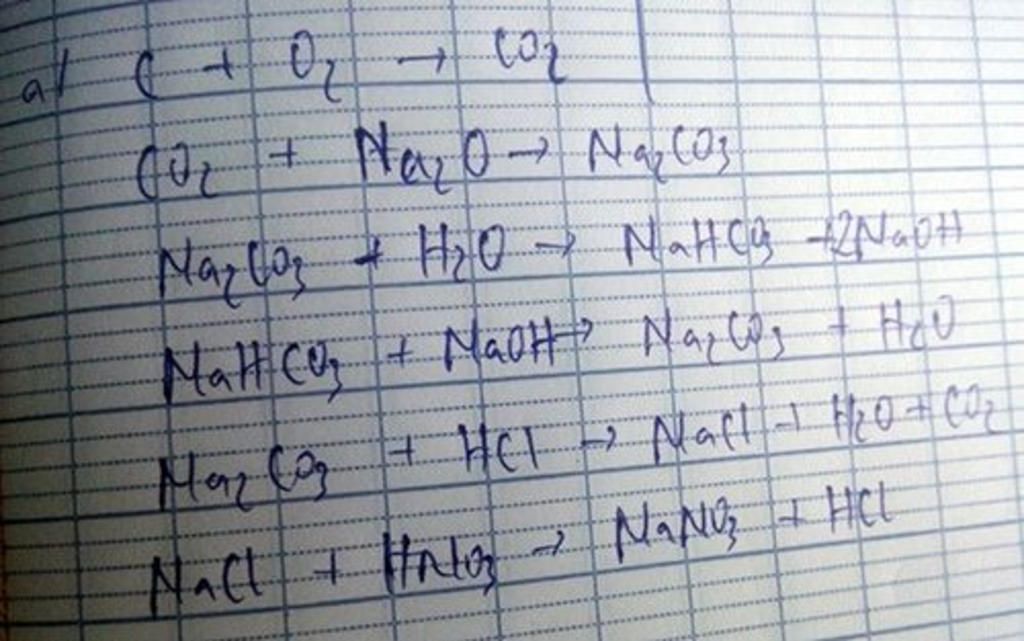 a/ C + O2 → CO2
CO2 + Na2O → Na2CO3
Na2CO3 + H2O → NaHCO3 + 2NaOH
NaHCO3 + NaOH → Na2CO3 + H2O
Na2CO3 + HCl → NaCl + H2O + CO2
NaCl + HNO3 → NaNO3 + HCl